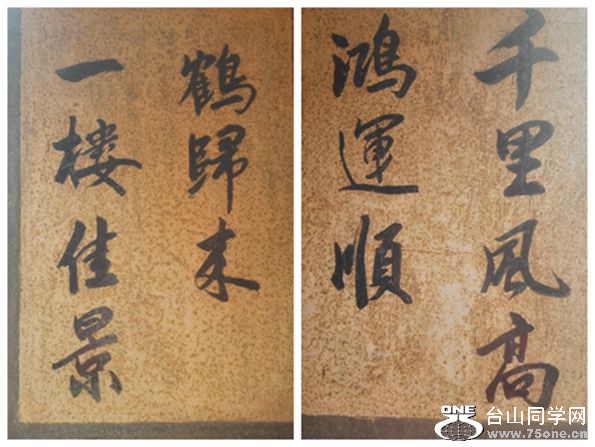 千里風高
鴻運順
一樓佳景
鶴歸来
ONE
台山同学网
www.75one.cn